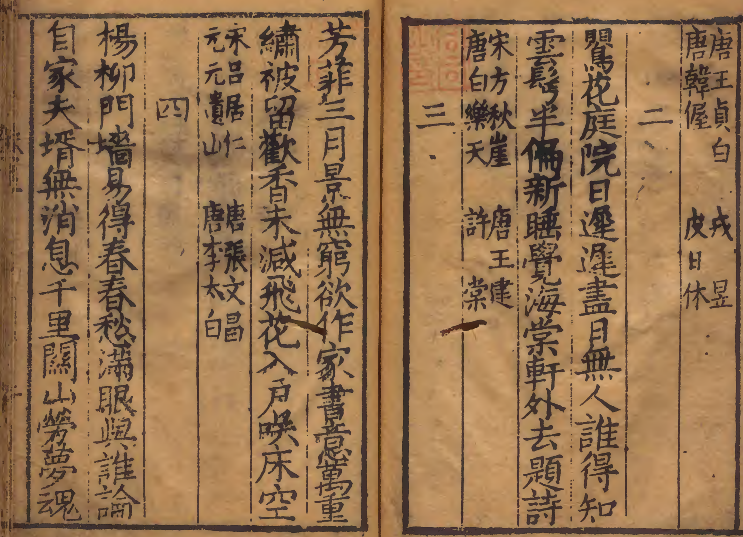 唐王貞白　戎昱
唐韓偓　皮日休
二
鸎花庭院日遲遲盡日無人誰得知
雲髩半偏新睡覺海棠軒外去題詩
宋方秋崖　唐王建
唐白樂天　許棠
三
芳菲三月景無窮欲作家書意萬重
繡被留歡香未減飛花入户唤床空
宋吕居仁　唐張文昌
元元遺山　唐李太白
四
楊柳門墻易得春春愁滿眼與誰論
自家夫壻無消息千里關山勞夢魂